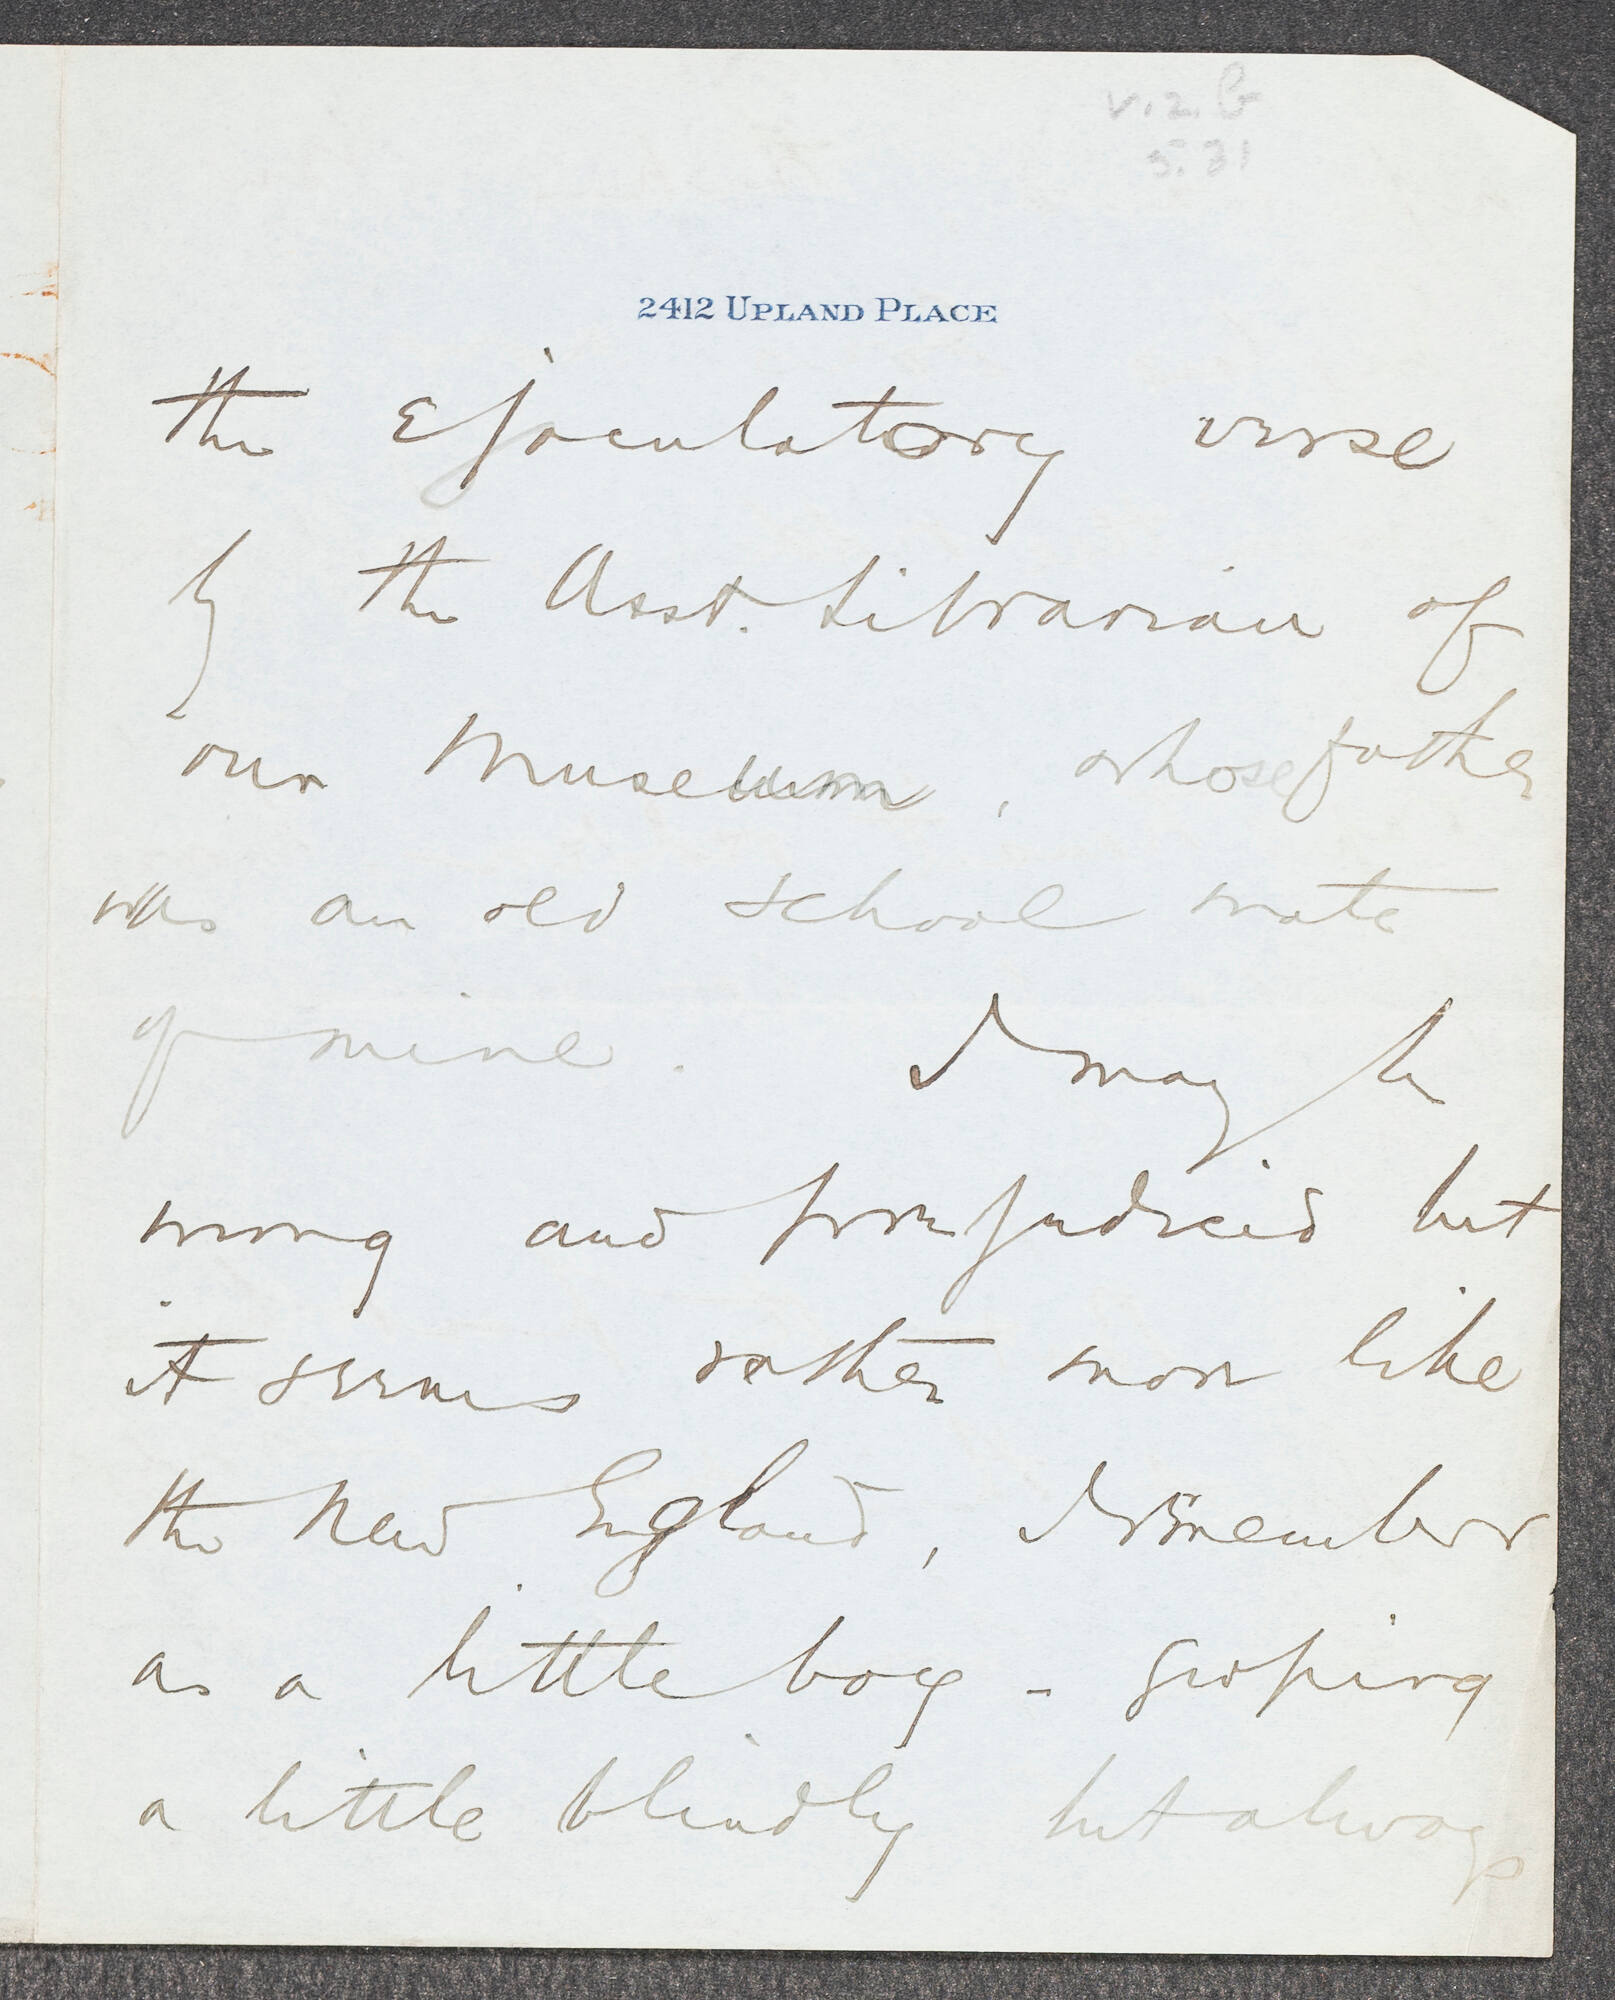 v. 2. B
5. 31
2412 UPLAND PLACE
the Ejaculatory verse
by the Asst. Librarian of
our Museum, whose father
was an old school mate
of mine. I may be
wrong and prejudiced but
it seems rather more like
the New England, I remember
as a little boy - groping
a little blindly but always